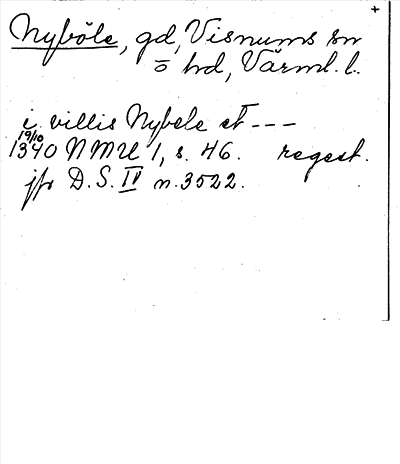 +
Nyböle, gd, Visnums sn
o hd, Värml. l.
i villis Nybele et ---
19/10
1340 NMU 1, s. 46. regest.
jfr D.S. IV n. 3522.